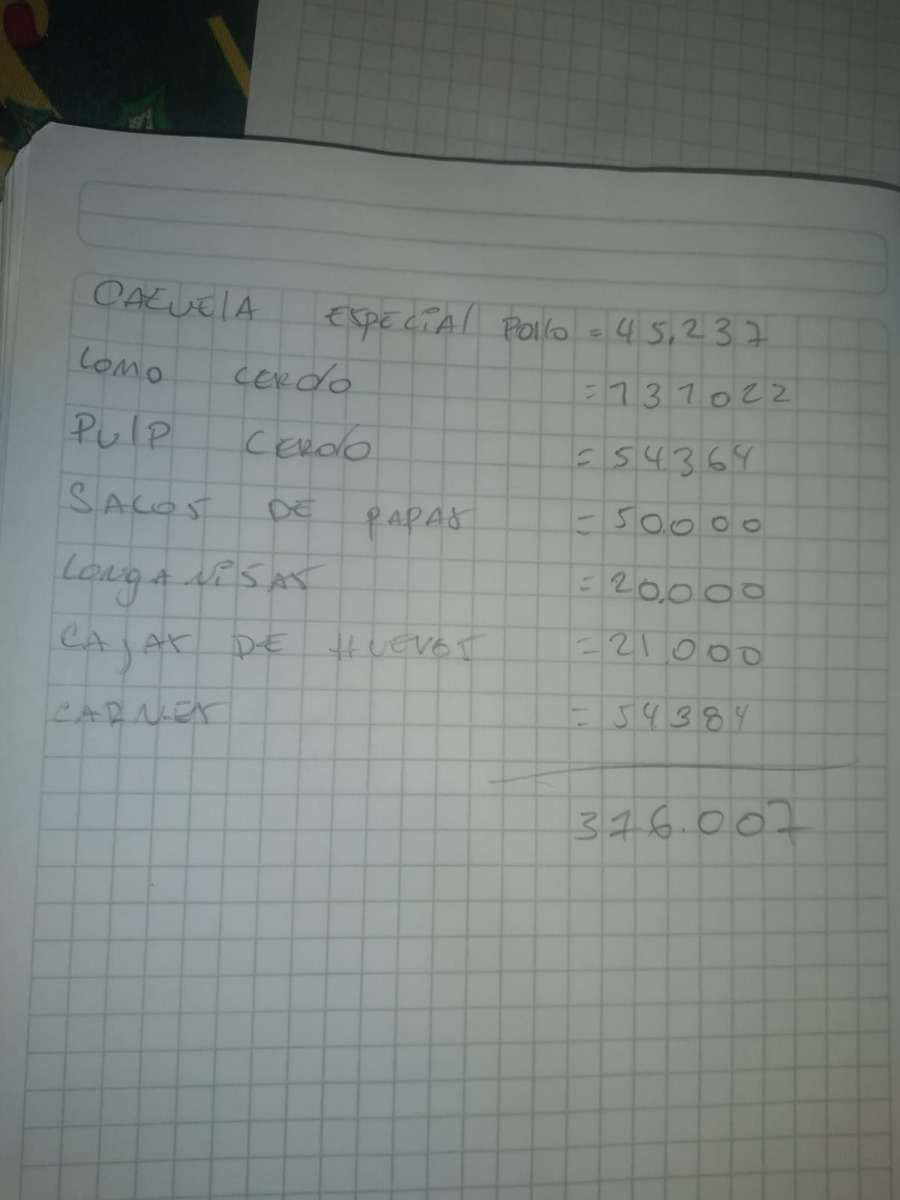 CAEUELA ESPECIAL POLLO = 45.237
LOMO CERDO = 131022
PULP CERDO = 54.364
SACOS DE PAPAS = 50.000
LONGANISAS = 20.000
CAJAS DE HUEVOS = 21.000
CARNES = 54.384
376.007